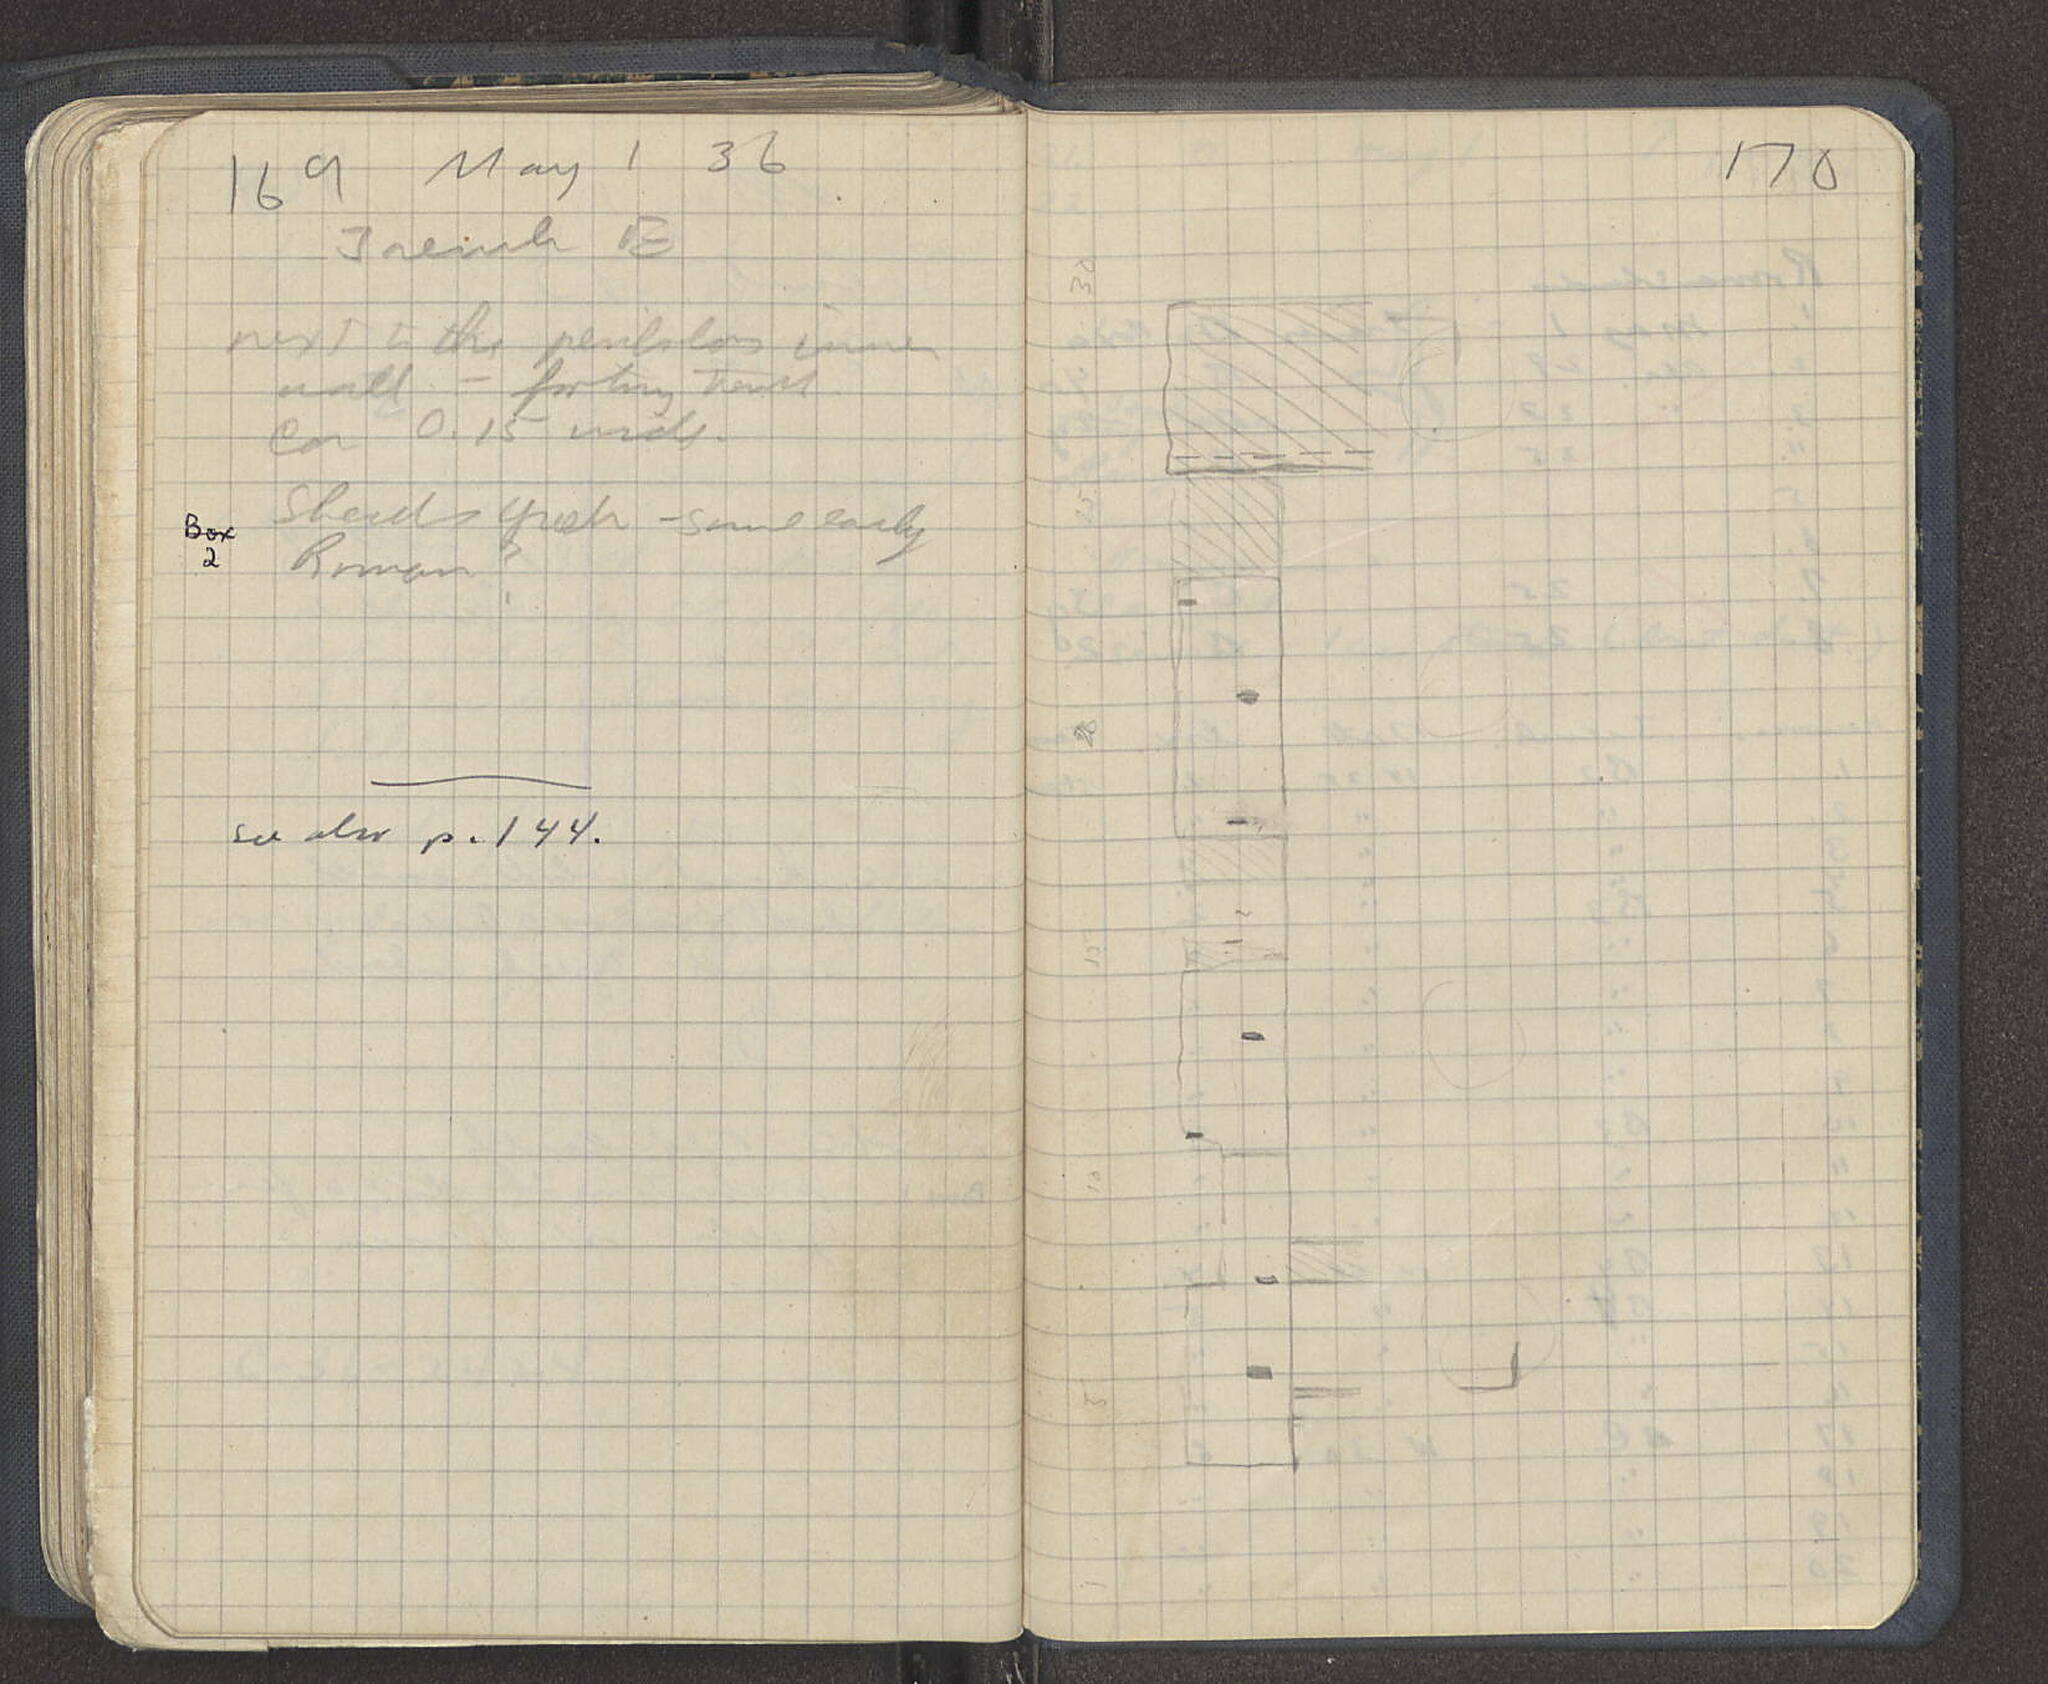 169 May 1 36
Trench E
next to the peribolos inner
wall. - footing trench
Ca 0.15 wide.
Box 2
Sherds Greek - some early
Roman?
see also p. 144.
170
30
25
20
15
10
5
1